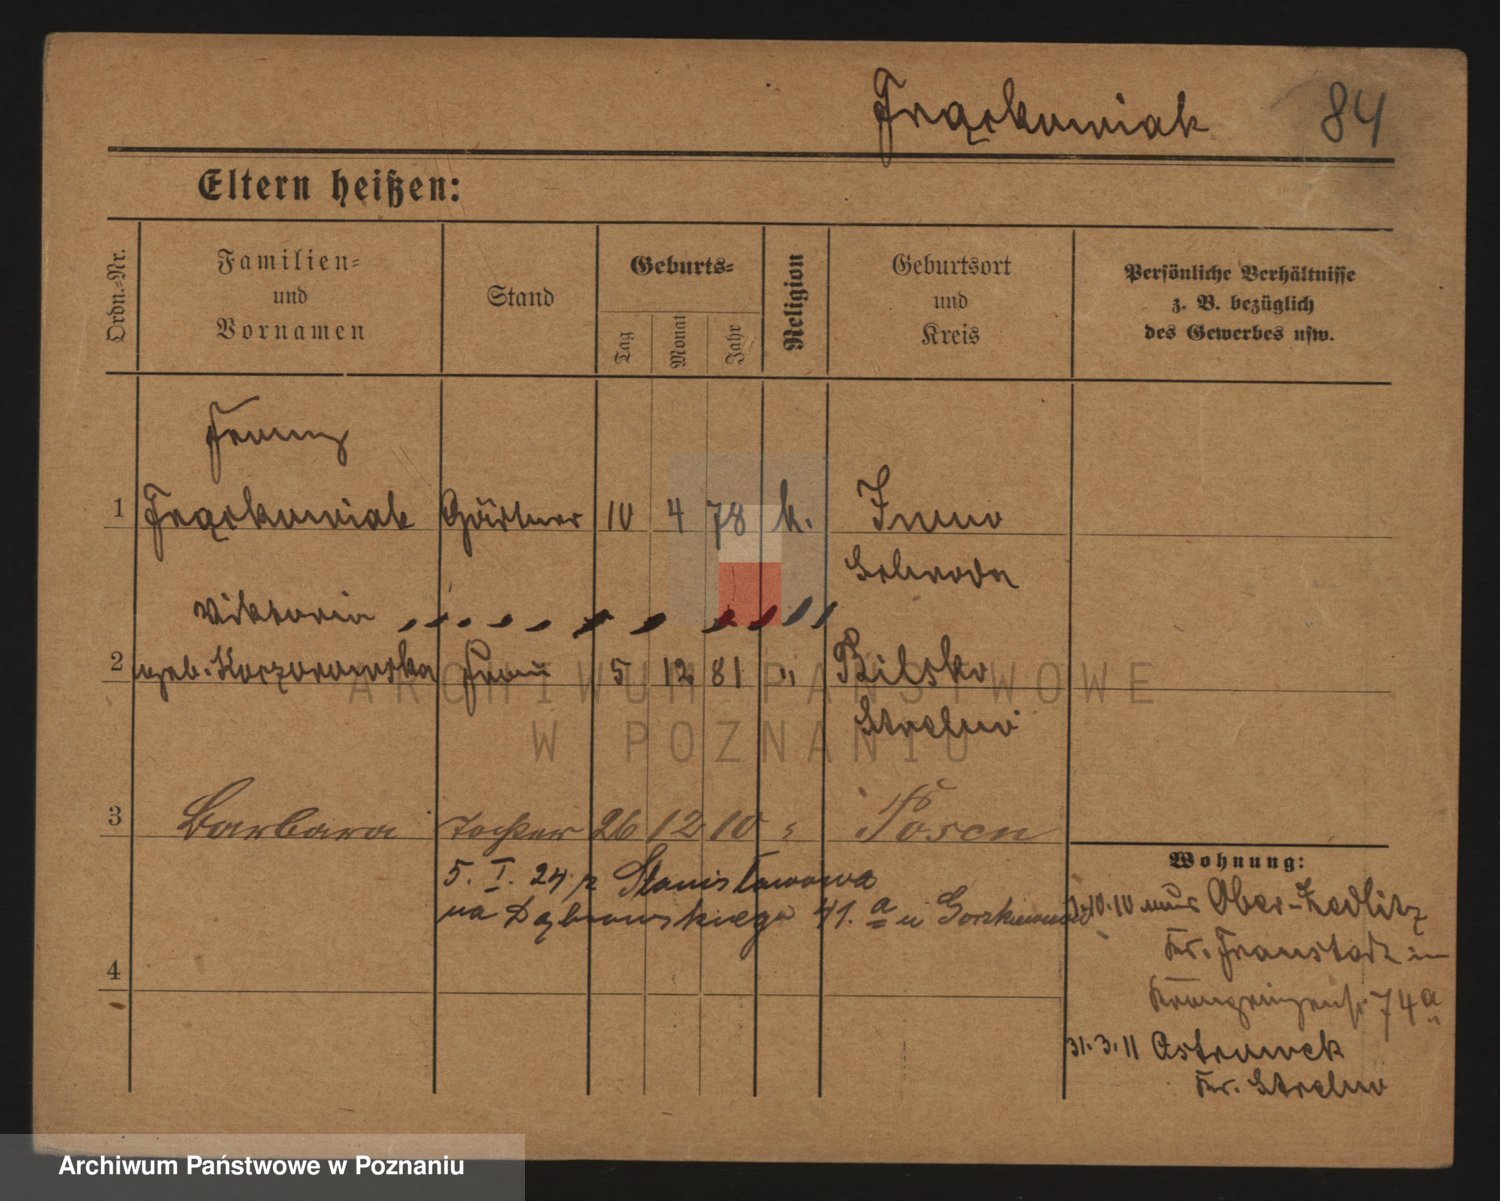 Frąckowiak 84
Eltern heißen:
Ordn.-Nr.
Familien-
und
Vornamen
Stand
Geburts-
Tag
Monat
Jahr
Religion
Geburtsort
und
Kreis
Persönliche Verhältnisse
z. B. bezüglich
des Gewerbes usw.
Franz
1 Frąckowiak Gärtner 10 4 78 k.
Schroda
Viktoria
2 geb. Kaczorowska Frau 5 12 81 " Bilsko
Strelno
3 Barbara Tochter 26 12 10 " Posen
5. I. 24 p Stanisławowa
na Dąbrowskiego 41. a u
Wohnung:
1.10.10 aus Ober-Zedlitz
Kr. Fraustadt in
Kronprinzenstr 74a
31.3.11 Ostrowek
Kr. Strelno
4
ARCHIWUM PAŃSTWOWE
W POZNANIU
Archiwum Państwowe w Poznaniu